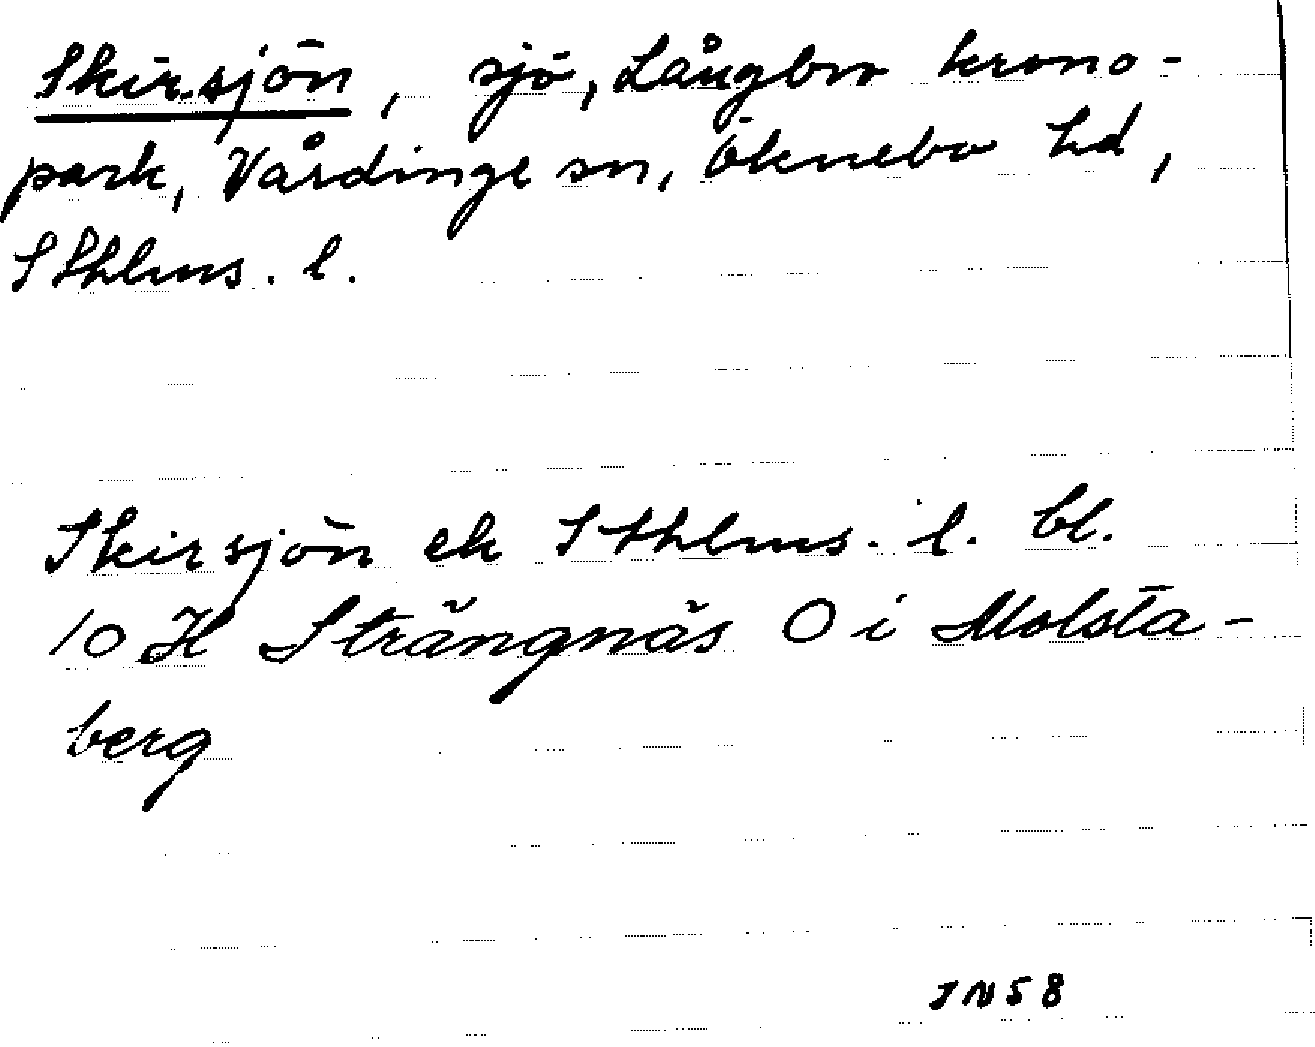 Skirsjön, sjö, Långbro krono-
park, Vårdinge sn, Öknebo hd,
Sthlms. l.
Skirsjön ek Sthlms. l. bl.
10 H Strängnäs O i Molsta-
berg
JN58